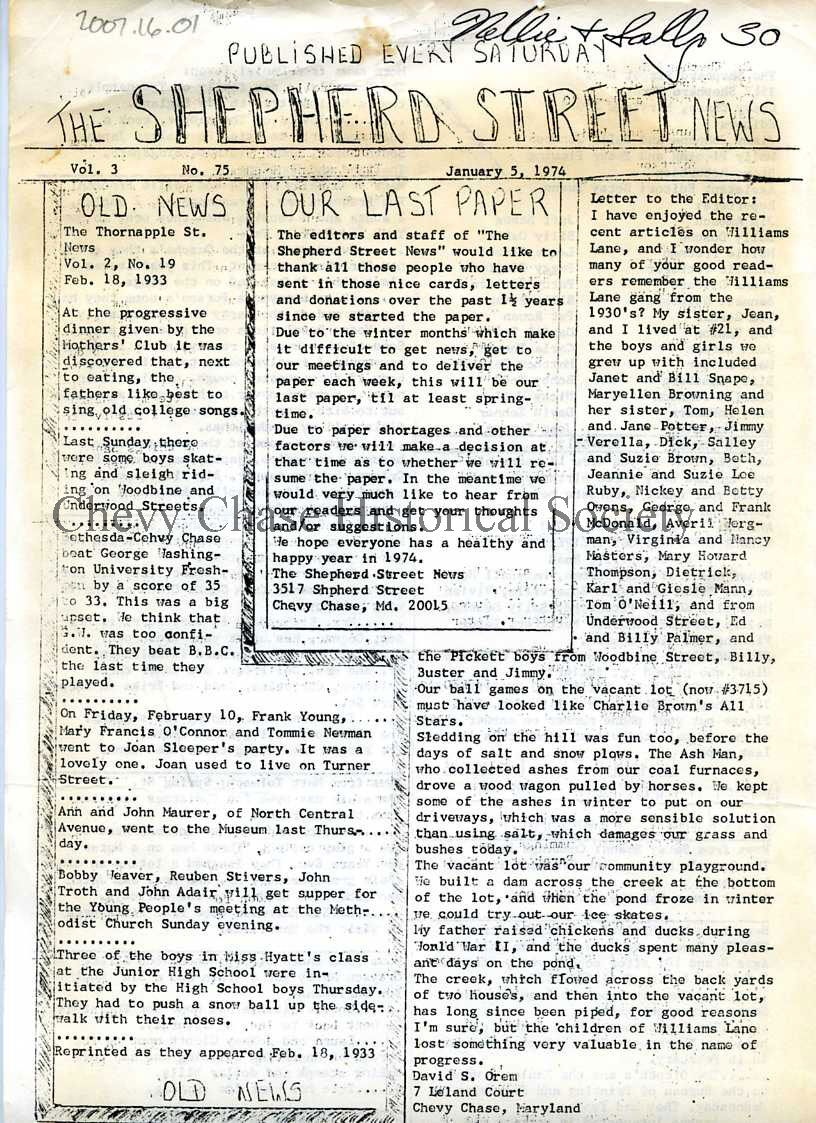 2007.16.01
Nellie & Sally 30
PUBLISHED EVERY SATURDAY
THE SHEPHERD STREET NEWS
Vol. 3 No. 75 January 5, 1974
OLD NEWS
The Thornapple St.
News
Vol. 2, No. 19
Feb. 18, 1933
At the progressive
dinner given by the
Mothers' Club it was
discovered that, next
to eating, the
fathers like best to
sing old college songs.
..........
Last Sunday there
were some boys skat-
ing and sleigh rid-
ing on Woodbine and
Underwood Streets.
..........
Bethesda-Cehvy Chase
beat George Washing-
ton University Fresh-
men by a score of 35
to 33. This was a big
upset. We think that
G.W. was too confi-
dent. They beat B.B.C.
the last time they
played.
..........
On Friday, February 10, Frank Young,
Mary Francis O'Connor and Tommie Newman
went to Joan Sleeper's party. It was a
lovely one. Joan used to live on Turner
Street.
..........
Ann and John Maurer, of North Central
Avenue, went to the Museum last Thurs-
day.
..........
Bobby Weaver, Reuben Stivers, John
Troth and John Adair will get supper for
the Young People's meeting at the Meth-
odist Church Sunday evening.
..........
Three of the boys in Miss Hyatt's class
at the Junior High School were in-
itiated by the High School boys Thursday.
They had to push a snow ball up the side-
walk with their noses.
..........
Reprinted as they appeared Feb. 18, 1933
OLD NEWS
OUR LAST PAPER
The editors and staff of "The
Shepherd Street News" would like to
thank all those people who have
sent in those nice cards, letters
and donations over the past 1½ years
since we started the paper.
Due to the winter months which make
it difficult to get news, get to
our meetings and to deliver the
paper each week, this will be our
last paper, til at least spring-
time.
Due to paper shortages and other
factors we will make a decision at
that time as to whether we will re-
sume the paper. In the meantime we
would very much like to hear from
our readers and get your thoughts
and/or suggestions.
We hope everyone has a healthy and
happy year in 1974.
The Shepherd Street News
3517 Shpherd Street
Chevy Chase, Md. 20015
Letter to the Editor:
I have enjoyed the re-
cent articles on Williams
Lane, and I wonder how
many of your good read-
ers remember the Williams
Lane gang from the
1930's? My sister, Jean,
and I lived at #21, and
the boys and girls we
grew up with included
Janet and Bill Snape,
Maryellen Browning and
her sister, Tom, Helen
and Jane Potter, Jimmy
Verella, Dick, Salley
and Suzie Brown, Beth,
Jeannie and Suzie Lee
Ruby, Nickey and Betty
Owens, George and Frank
McDonald, Averil Werg-
man, Virginia and Nancy
Masters, Mary Howard
Thompson, Dietrick,
Karl and Giesle Mann,
Tom O'Neill, and from
Underwood Street, Ed
and Billy Palmer, and
the Pickett boys from Woodbine Street, Billy,
Buster and Jimmy.
Our ball games on the vacant lot (now #3715)
must have looked like Charlie Brown's All
Stars.
Sledding on the hill was fun too, before the
days of salt and snow plows. The Ash Man,
who collected ashes from our coal furnaces,
drove a wood wagon pulled by horses. We kept
some of the ashes in winter to put on our
driveways, which was a more sensible solution
than using salt, which damages our grass and
bushes today.
The vacant lot was our community playground.
We built a dam across the creek at the bottom
of the lot, and when the pond froze in winter
we could try out our ice skates.
My father raised chickens and ducks during
World War II, and the ducks spent many pleas-
ant days on the pond.
The creek, which flowed across the back yards
of two houses, and then into the vacant lot,
has long since been piped, for good reasons
I'm sure, but the children of Williams Lane
lost something very valuable in the name of
progress.
David S. Orem
7 Leland Court
Chevy Chase, Maryland
Chevy Chase Historical Society